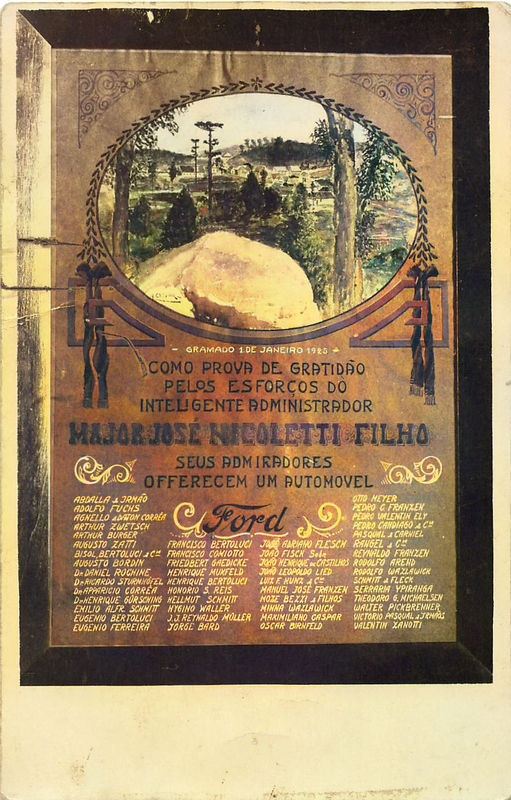 - GRAMADO 1 DE JANEIRO 1925 -
COMO PROVA DE GRATIDÃO
PELOS ESFORÇOS DO
INTELIGENTE ADMINISTRADOR
MAJOR JOSÉ NICOLETTI FILHO
SEUS ADMIRADORES
OFFERECEM UM AUTOMOVEL
Ford
ABDALLA & IRMÃO
ADOLFO FUCHS
AGNELLO & DATON CORRÊA
ARTHUR ZWETSCH
ARTHUR BURGER
AUGUSTO ZATTI
BISOL BERTOLUCI & Cia
AUGUSTO BORDIN
Dr DANIEL RUCHINE
Dr RICARDO STURNHÖFEL
Dr APPARICIO CORRÊA
Dr HENRIQUE GÜRSCHING
EMILIO ALFR. SCHMITT
EUGENIO BERTOLUCI
EUGENIO FERREIRA
FRANCISCO BERTOLUCI
FRANCISCO COMIOTTO
FRIEDBERT GAEDICKE
HENRIQUE MUXFELD
HENRIQUE BERTOLUCI
HONORIO S. REIS
HELLMUT SCHMITT
HYGINO WALLER
J.J. REYNALDO MÜLLER
JORGE BARD
JOÃO ADRIANO FLESCH
JOÃO FISCK Sobo
JOÃO HENRIQUE DE CASTILHOS
JOÃO LEOPOLDO LIED
LUIZ F. HUNZ & Cia
MANUEL JOSÉ FRANZEN
MOZE BEZZI & FILHOS
MINNA WAZLAWICK
MAXIMILIANO CASPAR
OSCAR BIRNFELD
OTTO MEYER
PEDRO G. FRANZEN
PEDRO VALENTIN ELY
PEDRO CANDIAGO & Cia
PASQUAL & CARNIEL
RANGEL & Cia
REYNALDO FRANZEN
RODOLFO AREND
RODOLFO WAZLAWICK
SCHMITT & FLECK
SERRARIA YPIRANGA
THEODORO G. MICHAELSEN
WALTER PICKBRENNER
VICTORIO PASQUAL & IRMÃOS
VALENTIN ZANOTTI